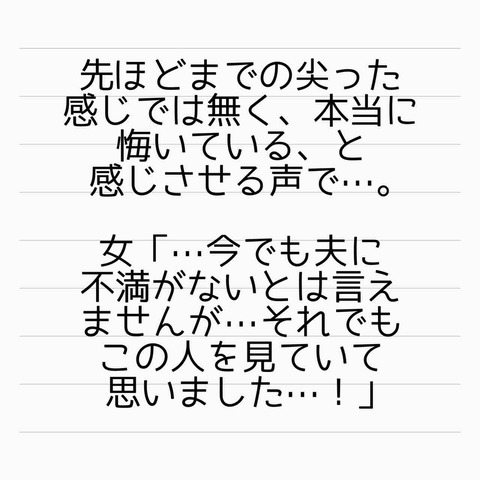 先ほどまでの尖った
感じでは無く、本当に
悔いている、と
感じさせる声で…。
女「…今でも夫に
不満がないとは言え
ませんが…それでも
この人を見ていて
思いました…！」